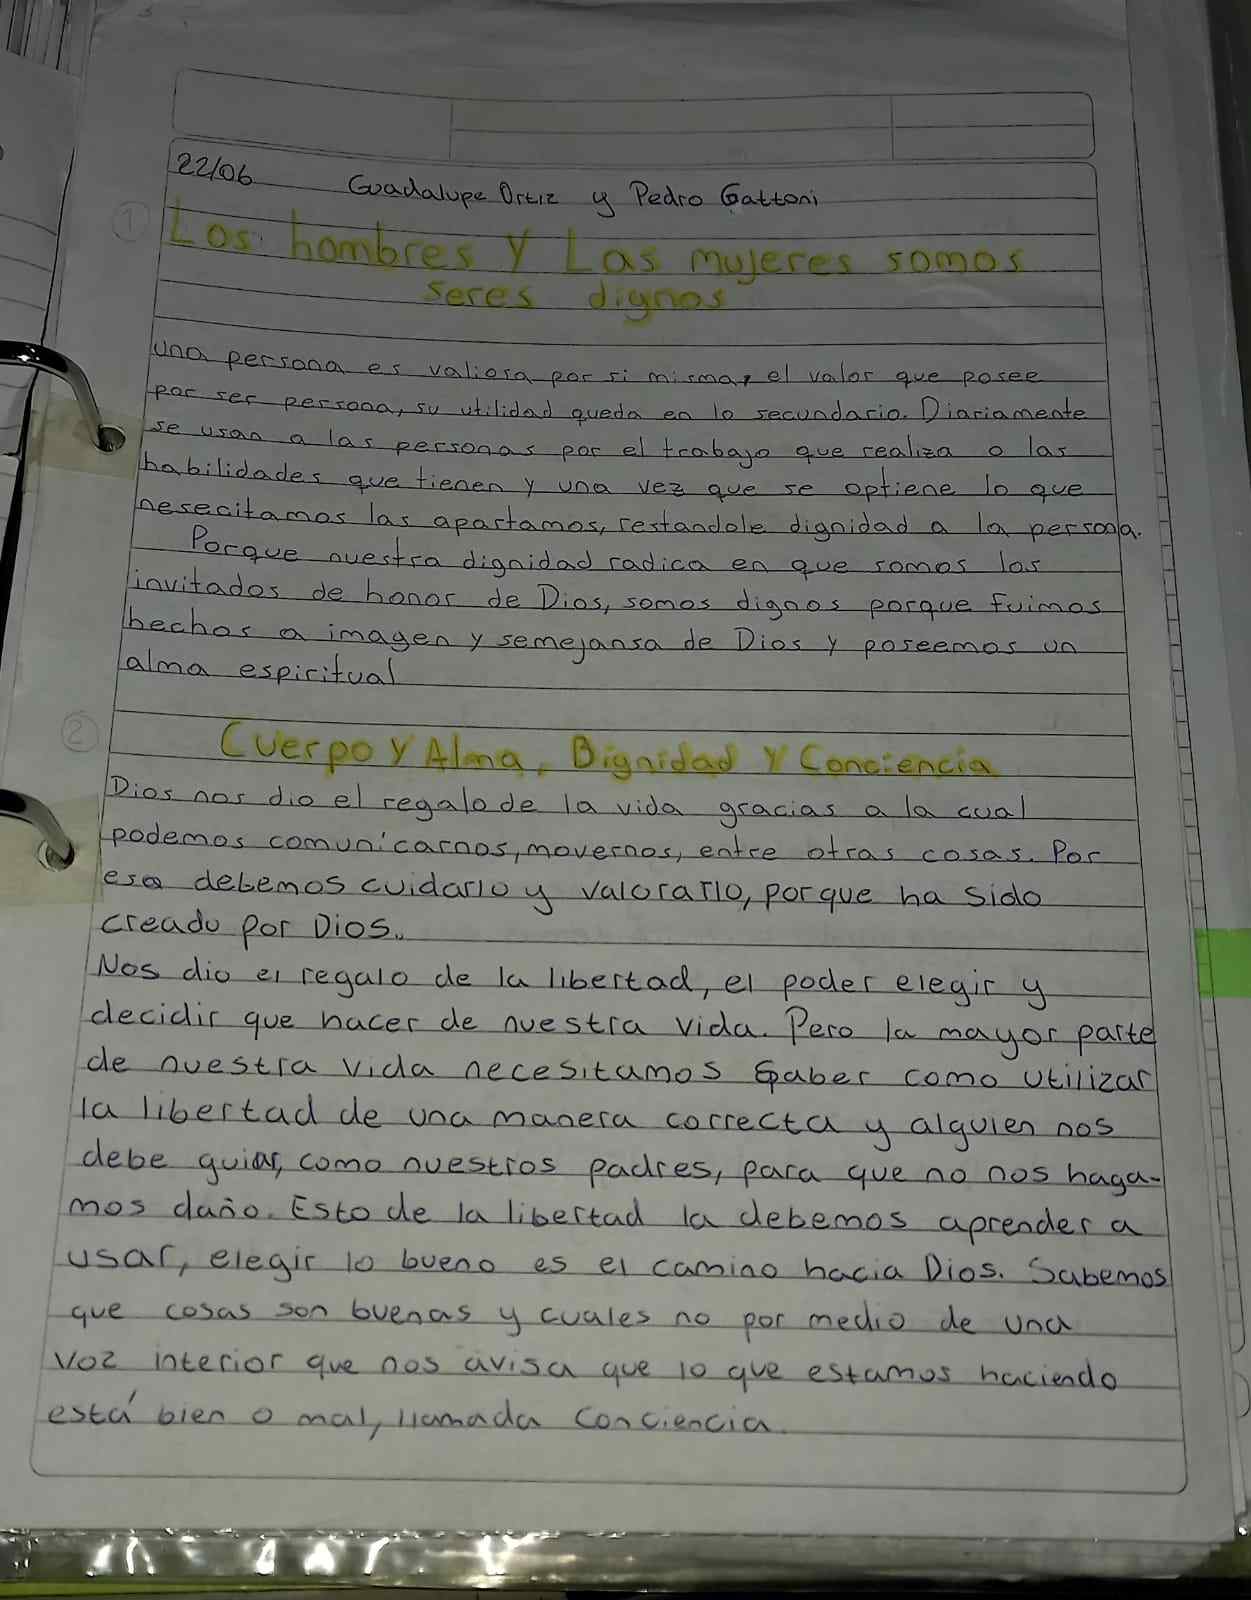 22/06 Guadalupe Ortiz y Pedro Gattoni
1
Los hombres y Las mujeres somos
seres dignos
una persona es valiosa por si misma, el valor que posee
por ser persona, su utilidad queda en lo secundario. Diariamente
se usan a las personas por el trabajo que realiza o las
habilidades que tienen y una vez que se optiene lo que
nesecitamos las apartamos, restandole dignidad a la persona.
Porque nuestra dignidad radica en que somos los
invitados de honor de Dios, somos dignos porque fuimos
hechos a imagen y semejansa de Dios y poseemos un
alma espiritual
2
Cuerpo y Alma, Dignidad y Conciencia
Dios nos dio el regalo de la vida gracias a la cual
podemos comunicarnos, movernos, entre otras cosas. Por
eso debemos cuidarlo y valorarlo, porque ha sido
creado por Dios.
Nos dio el regalo de la libertad, el poder elegir y
decidir que hacer de nuestra vida. Pero la mayor parte
de nuestra vida necesitamos saber como utilizar
la libertad de una manera correcta y alguien nos
debe guiar, como nuestros padres, para que no nos haga-
mos daño. Esto de la libertad la debemos aprender a
usar, elegir lo bueno es el camino hacia Dios. Sabemos
que cosas son buenas y cuales no por medio de una
voz interior que nos avisa que lo que estamos haciendo
está bien o mal, llamada Conciencia.